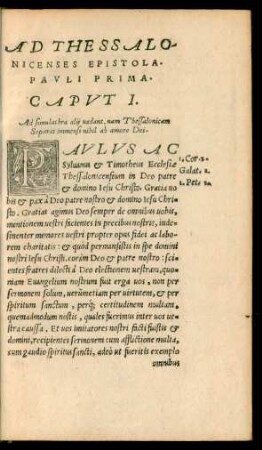 AD THESSALO-
NICENSES EPISTOLA
PAVLI PRIMA.
CAPVT I.
Ad simulachra alij nadant, nam Thessalonicam
Separat immensi nihil ab amore Dei.
PAVLVS AC
Syluanus & Timotheus Ecclesiæ
Thessalonicensium in Deo patre
& domino Iesu Christo. Gratia vo
bis & pax à Deo patre nostro & domino Iesu Chri-
sto. Gratias agimus Deo semper de omnibus vobis,
mentionem vestri facientes in precibus nostris, inde-
sinenter memores vestri propter opus fidei ac labo-
rem charitatis: & quòd permansistis in spe domini
nostri Iesu Christi, corám Deo & patre nostro: sci-
entes fratres dilecti à Deo electionem vestram, quo-
niam Euangelium nostrum fuit erga vos, non per
sermonem solum, verùmetiam per virtutem, & per
spiritum sanctum, perq́; certitudinem multam,
quemadmodum nostis, quales fuerimus inter vos ve-
stra caussa. Et vos imitatores nostri facti fuistis &
domini, recipientes sermonem cum afflictione multa,
cum gaudio spiritus sancti, adeò ut fueritis exemplo
omnibus
1. Cor.
Galat. 2.
1. Pet. 2.